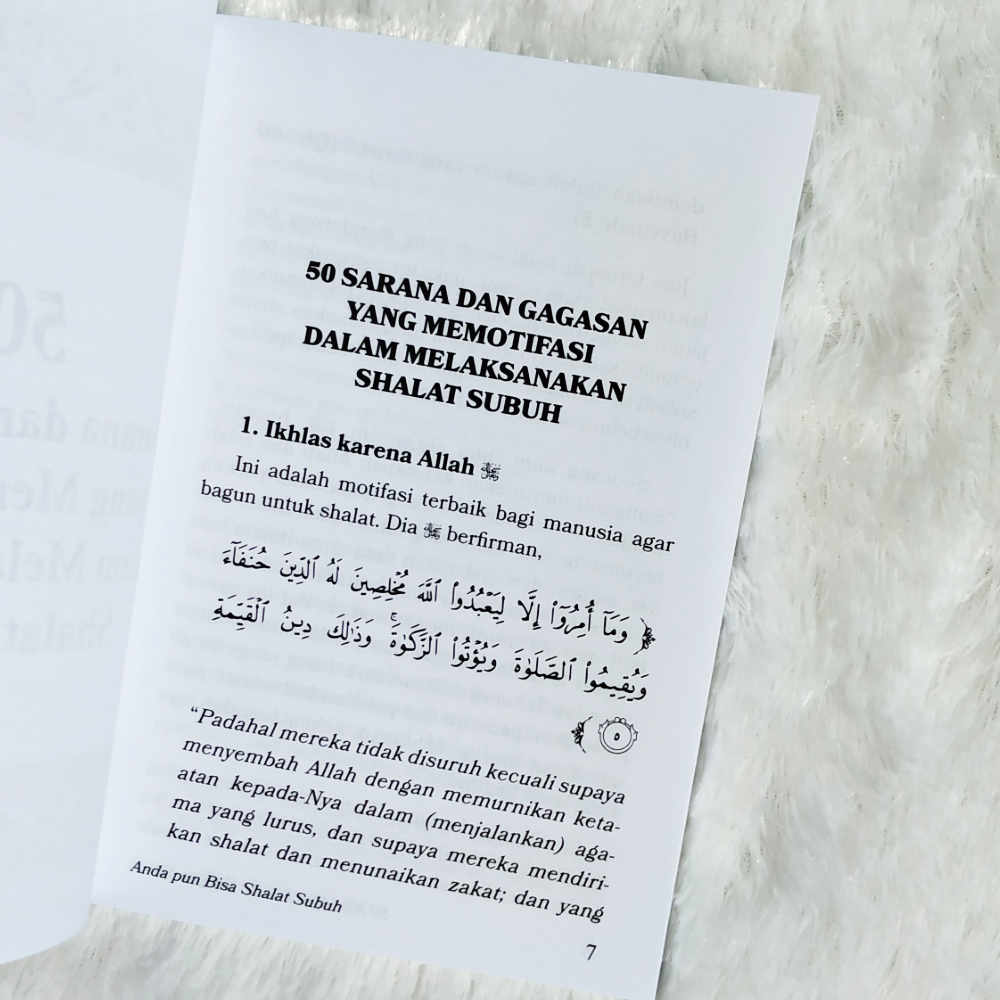 50 SARANA DAN GAGASAN
YANG MEMOTIFASI
DALAM MELAKSANAKAN
SHALAT SUBUH
1. Ikhlas karena Allah ﷻ
Ini adalah motifasi terbaik bagi manusia agar
bagun untuk shalat. Dia ﷻ berfirman,
﴿ وَمَآ أُمِرُوٓا۟ إِلَّا لِيَعْبُدُوا۟ ٱللَّهَ مُخْلِصِينَ لَهُ ٱلدِّينَ حُنَفَآءَ
وَيُقِيمُوا۟ ٱلصَّلَوٰةَ وَيُؤْتُوا۟ ٱلزَّكَوٰةَ ۚ وَذَٰلِكَ دِينُ ٱلْقَيِّمَةِ
٥ ﴾
“Padahal mereka tidak disuruh kecuali supaya
menyembah Allah dengan memurnikan keta-
atan kepada-Nya dalam (menjalankan) aga-
ma yang lurus, dan supaya mereka mendiri-
kan shalat dan menunaikan zakat; dan yang
Anda pun Bisa Shalat Subuh
7